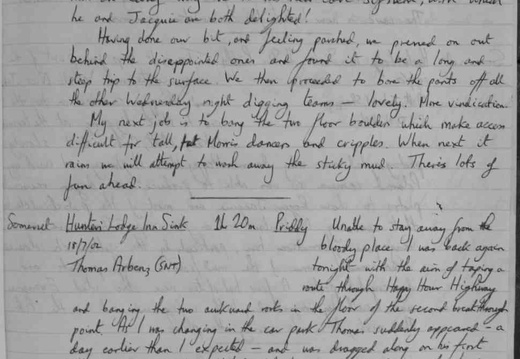 he and Jacquie are both delighted!
Having done our bit, and feeling parched, we pressed on out
behind the disappointed ones and found it to be a long and
steep trip to the surface. We then proceeded to bore the pants off all
the other Wednesday night digging teams – lovely. More vindication.
My next job is to bang the two floor boulders which make access
difficult for tall, fat Morris dancers and cripples. When next it
rains we will attempt to wash away the sticky mud. There's lots of
fun ahead.
Somerset Hunters Lodge Inn Sink 1h 20m Priddy Unable to stay away from the
18/7/02 bloody place I was back again
Thomas Arbenz (SNT) tonight with the aim of taping a
route through Happy Hour Highway
and banging the two awkward rocks in the floor of the second breakthrough
point. As I was changing in the car park Thomas suddenly appeared – a
day earlier than I expected – and was dragged along on his first